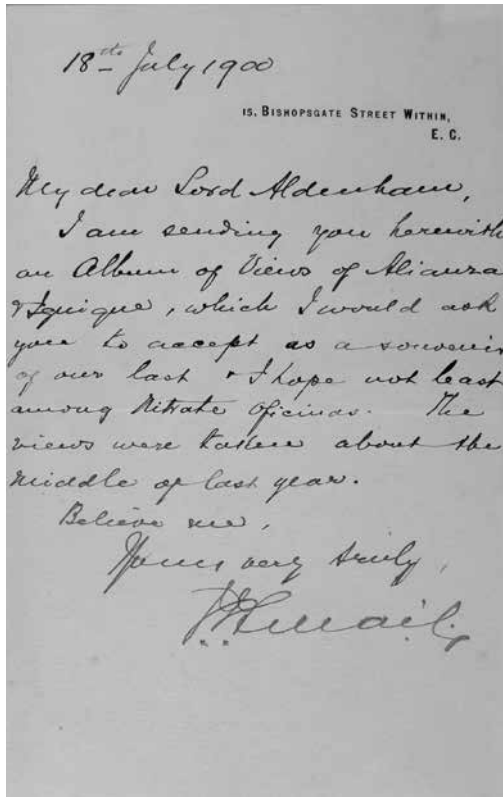 18th July 1900
15, Bishopsgate Street Within,
E. C.
My dear Lord Aldenham,
I am sending you herewith
an Album of Views of Alianza
& Iquique, which I would ask
you to accept as a souvenir
of our last & I hope not least
among Nitrate Oficinas. The
views were taken about the
middle of last year.
Believe me,
Yours very truly,